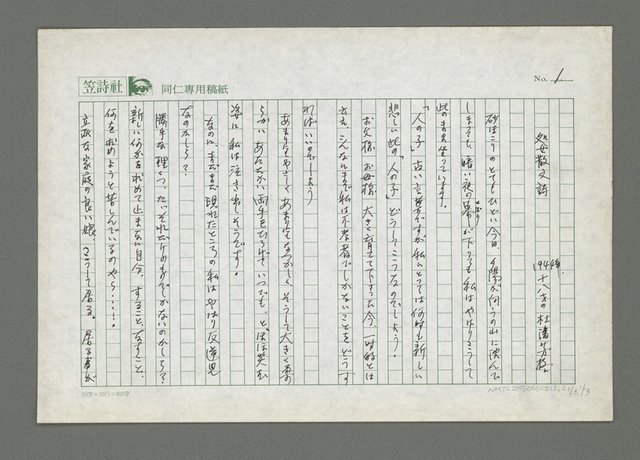 笠詩社 同仁専用稿紙
No. 1.
処女散文詩
1944年
十八才の杜潘芳格
砂ぼこりのとてもひどい今日、夕陽が向うの山に沈んで
しまっても、暗い夜の幕が下りても私はやはりこうして
とばり
此のまま坐っています。
「人の子」古い言葉ですが私にとっては何時も新しい
悲しい此の「人の子」どうしてこうなのでしょう。
お父様、お母様、大きく育てて下すった今、一時的とは
云え、こんなにまで私は不孝者でしかないことをどうす
ればいいのでしょう
あまりにもやさしく あまりにもなつかしく そうして大きく
らかいあたたかい両手をひろげて いつでも、と、ほほ笑む
姿に 私は泣き出しそうです。
なのに、まだまだ 現れたところの私はやはり反逆児
なのかしら?
勝手な理くつ、たゞそれだけのものでしかないのかしら?
新しい何かを求めて止まない自今、すること、なすこと、
何を求めようと苦しんでいるのやら……。
立派な家庭の良い娘、こうして居る。居る事が
20字×20行=400字
1/3, 1/3